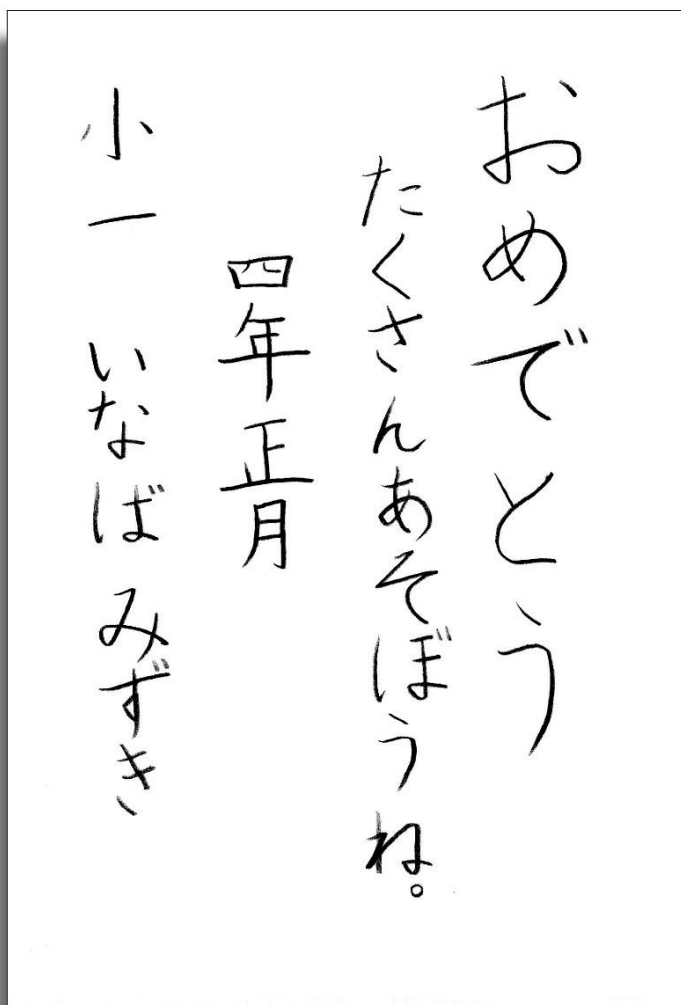 おめでとう
たくさんあそぼうね。
四年正月
小一 いなば みずき